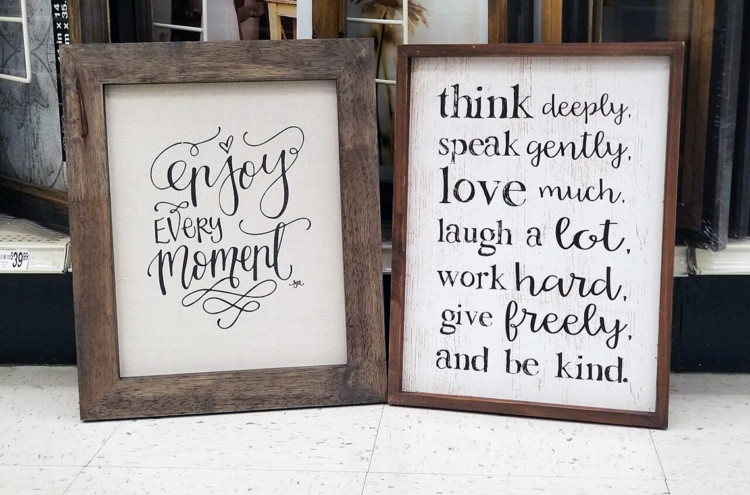 enjoy
EVERY
Moment
think deeply,
speak gently,
love much,
laugh a lot,
work hard,
give freely,
and be kind.
$39⁹⁹